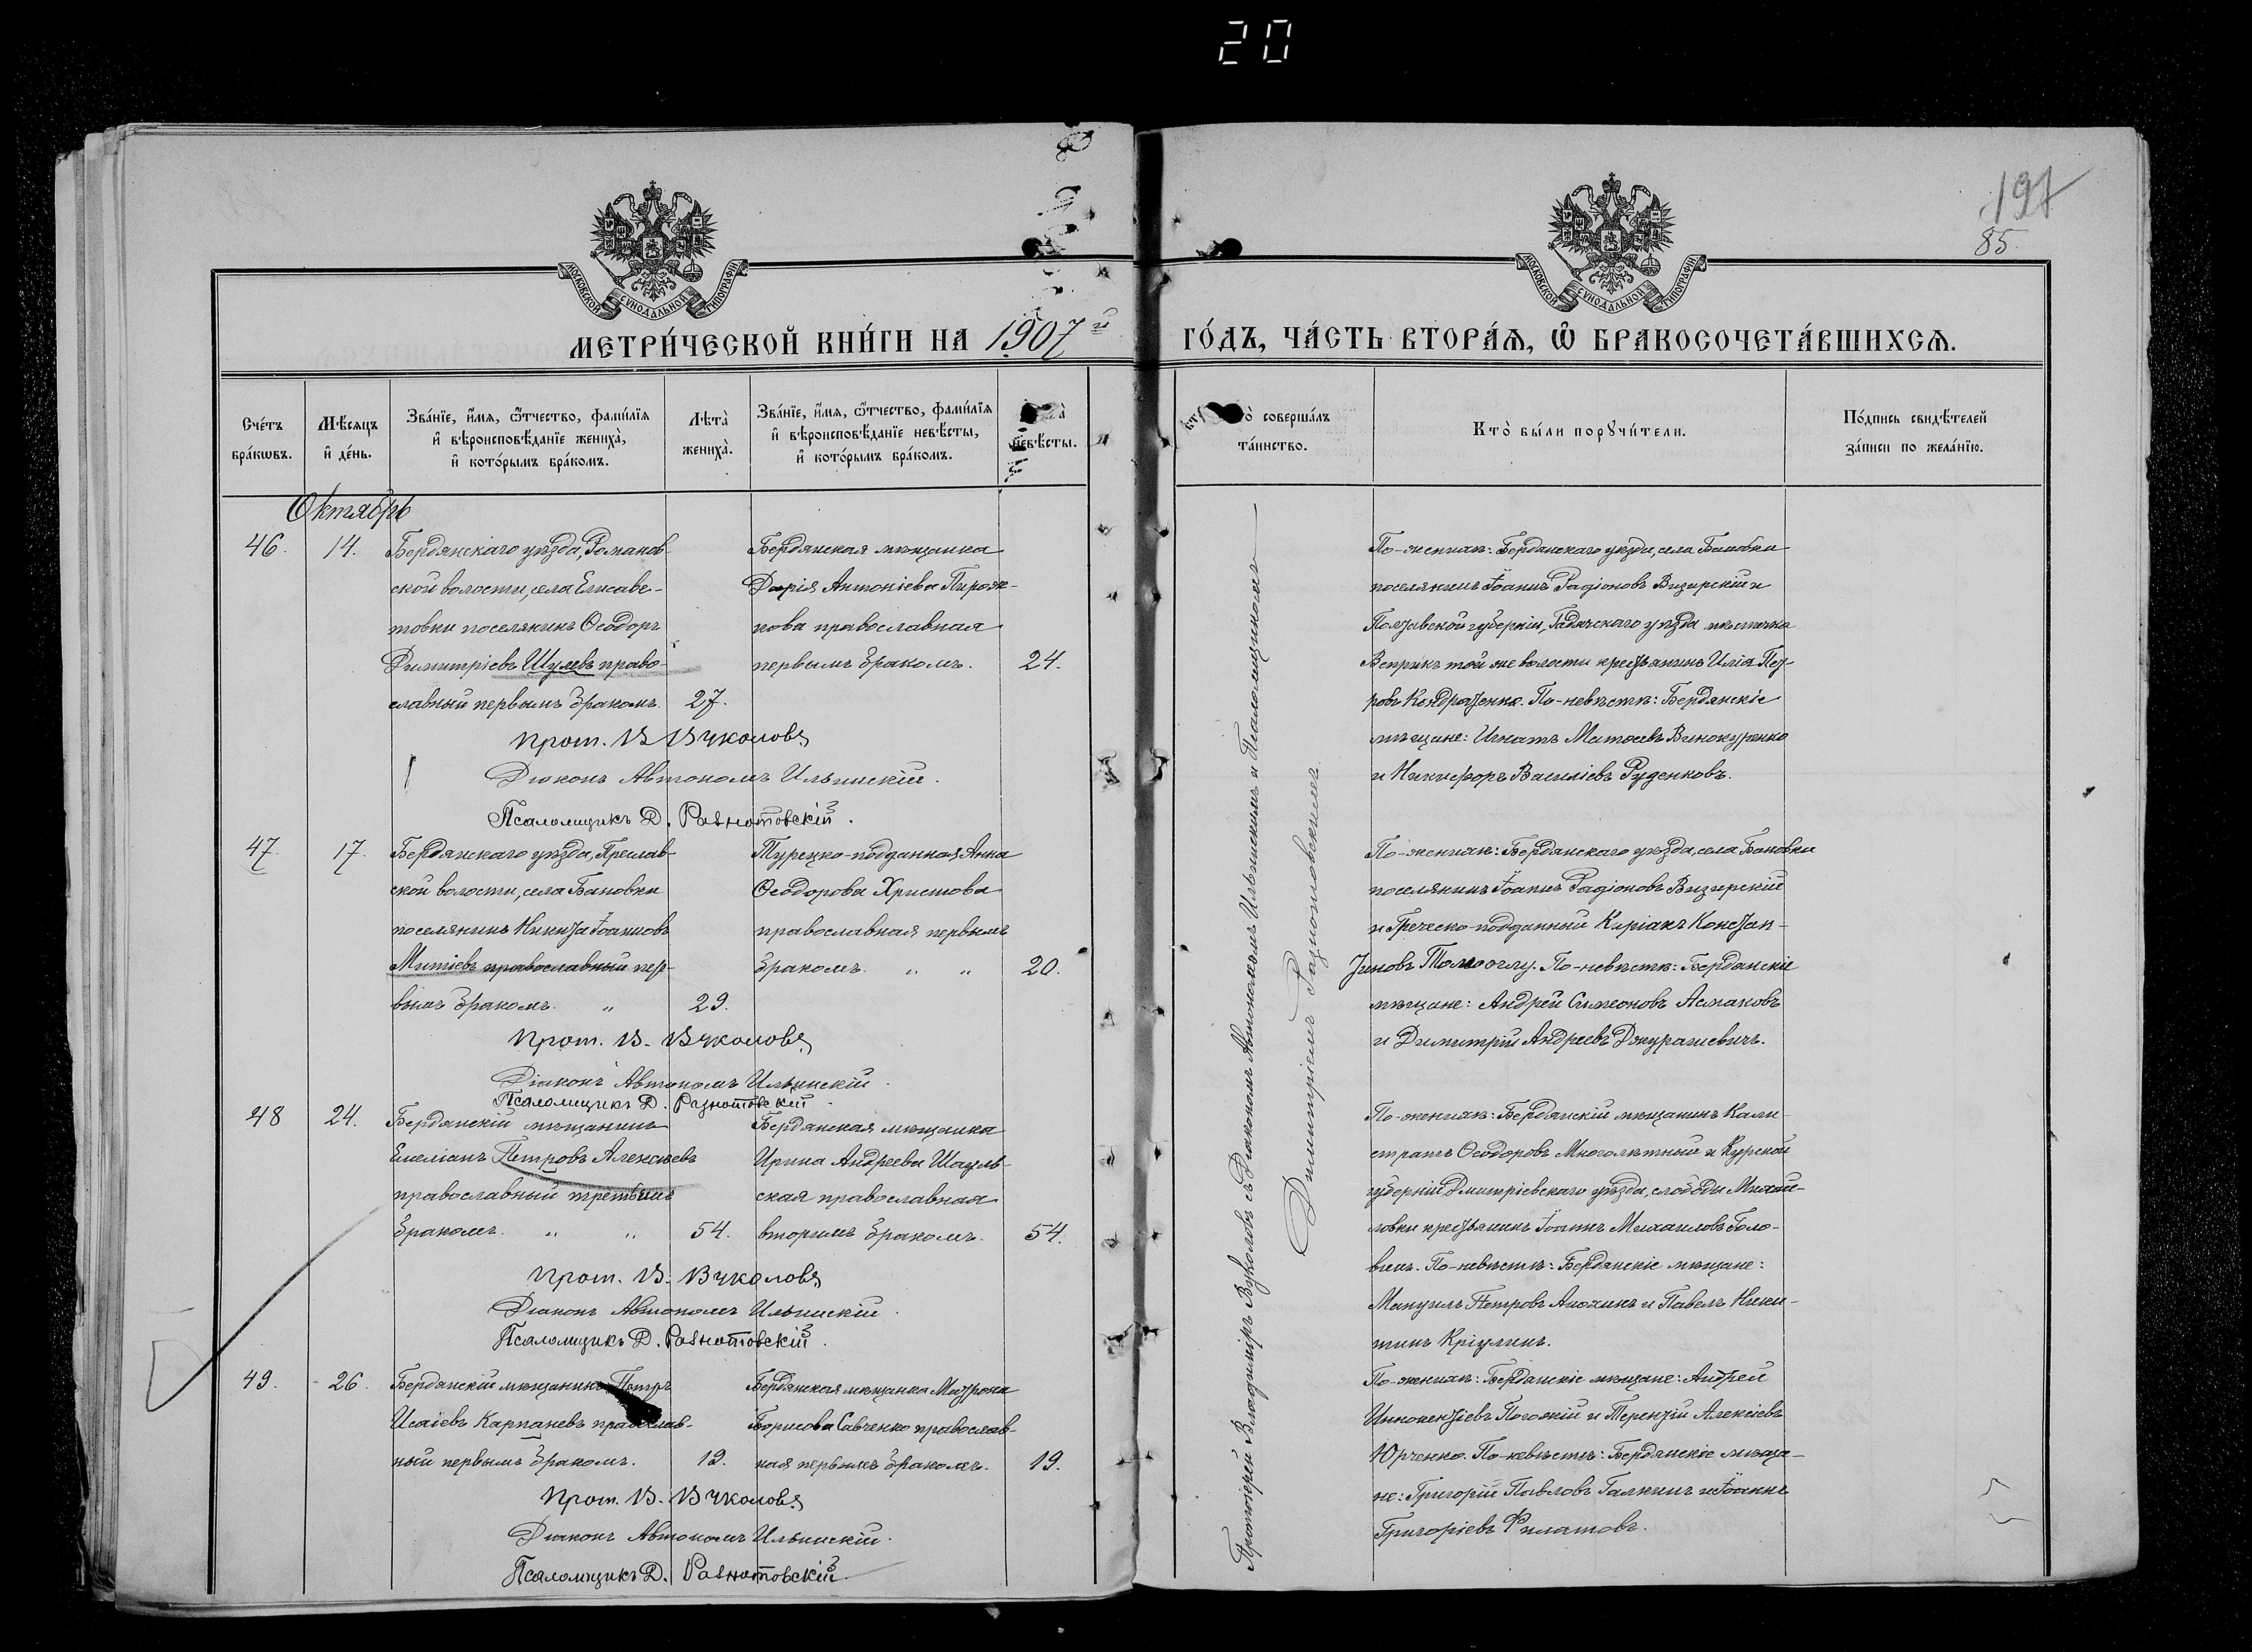 20
197
85
МОСКОВСКОЙ СѴНОДАЛЬНОЙ ТИПОГРАФІИ
МОСКОВСКОЙ СѴНОДАЛЬНОЙ ТИПОГРАФІИ
МЕТРИ́ЧЕСКОЙ КНИ́ГИ НА 1907й ГО́ДЪ, ЧА́СТЬ ВТОРА́Ѧ, Ѽ БРАКОСОЧЕТА́ВШИХСѦ.
Сче́тъ
бра́кѡвъ.
Мѣ́сѧцъ
и҆ де́нь.
Зва́нїе, и҆́мѧ, ѻ҆́тчество, фамѝлїѧ
и҆ вѣроисповѣ́данїе жениха̀,
и҆ кото́рымъ бра́комъ.
Лѣта̀
жениха̀.
Зва́нїе, и҆́мѧ, ѻ҆́тчество, фамѝлїѧ
и҆ вѣроисповѣ́данїе невѣ́сты,
и҆ кото́рымъ бра́комъ.
невѣ́сты.
совершáлъ
та́инство.
Кто̀ бы́ли порꙋчи́тели.
По́дпись свидѣ́телей
за́писи по жела́нїю.
Октябрь
46. 14. Бердянскаго уѣзда, Романов-
ской волости, села Елисаве-
товки поселянинъ Ѳеодоръ
Димитріевъ Шулевъ право-
славный первымъ бракомъ. 27.
Бердянская мѣщанка
Дарія Антоніева Пирож-
кова православная
первымъ бракомъ. 24.
По-женихѣ: Бердянскаго уѣзда, села Бановки
поселянинъ Іоаннъ Радіоновъ Визирскій и
Полтавской губерніи, Гадячскаго уѣзда мѣстечка
Веприкъ той же волости крестьянинъ Илія Пет-
ровъ Кондратенко. По-невѣстѣ: Бердянскіе
мѣщане: Игнатъ Матѳеевъ Винокуренко
и Никифоръ Василіевъ Руденковъ.
Прот. В. Вуколовъ
Діаконъ Автономъ Ильинскій.
Псаломщикъ Д. Разнотовскій.
47. 17. Бердянскаго уѣзда, Преслав-
ской волости, села Бановки
поселянинъ Никита Іоанновъ
Митіевъ православный пер-
вымъ бракомъ. " 29.
Турецко-подданная Анна
Ѳеодорова Христова
православная первымъ
бракомъ. " " 20.
По-женихѣ: Бердянскаго уѣзда, села Бановки
поселянинъ Іоаннъ Радіоновъ Визирскій
и Греческо-подданный Киріакъ Констан-
тиновъ Томооглу. По-невѣстѣ: Бердянскіе
мѣщане: Андрей Симеоновъ Асмаковъ
и Димитрій Андреевъ Джурашевичъ.
Прот. В. Вуколовъ
Діаконъ Автономъ Ильинскій.
Псаломщикъ Д. Разнотовскій.
48 24. Бердянскій мѣщанинъ
Емеліанъ Петровъ Алексѣевъ
православный третьимъ
бракомъ. " " 54.
Бердянская мѣщанка
Ирина Андреева Шауль-
ская православная
вторымъ бракомъ. 54.
По-женихѣ: Бердянскій мѣщанинъ Кали-
стратъ Ѳеодоровъ Многолѣтный и Курской
губерніи Дмитріевскаго уѣзда, слободы Михай-
ловки крестьянинъ Іоаннъ Михаиловъ Голо-
винъ. По-невѣстѣ: Бердянскіе мѣщане:
Мануилъ Петровъ Анохинъ и Павелъ Ники-
тинъ Кріулинъ.
Прот. В. Вуколовъ
Діаконъ Автономъ Ильинскій.
Псаломщикъ Д. Разнотовскій.
49. 26. Бердянскій мѣщанинъ Петръ
Исаіевъ Карпаневъ православ-
ный первымъ бракомъ. 19.
Бердянская мѣщанка Матрона
Борисова Савченко православ-
ная первымъ бракомъ. 19.
По-женихѣ: Бердянскіе мѣщане: Андрей
Иннокентіевъ Погожій и Терентій Алексіевъ
Юрченко. По-невѣстѣ: Бердянскіе мѣща-
не: Григорій Павловъ Галкинъ и Іоаннъ
Григоріевъ Филатовъ.
Прот. В. Вуколовъ
Діаконъ Автономъ Ильинскій.
Псаломщикъ Д. Разнотовскій.
Протоіерей Владиміръ Вуколовъ съ Діакономъ Автономомъ Ильинскимъ и Псаломщикомъ
Димитріемъ Разнотовскимъ.